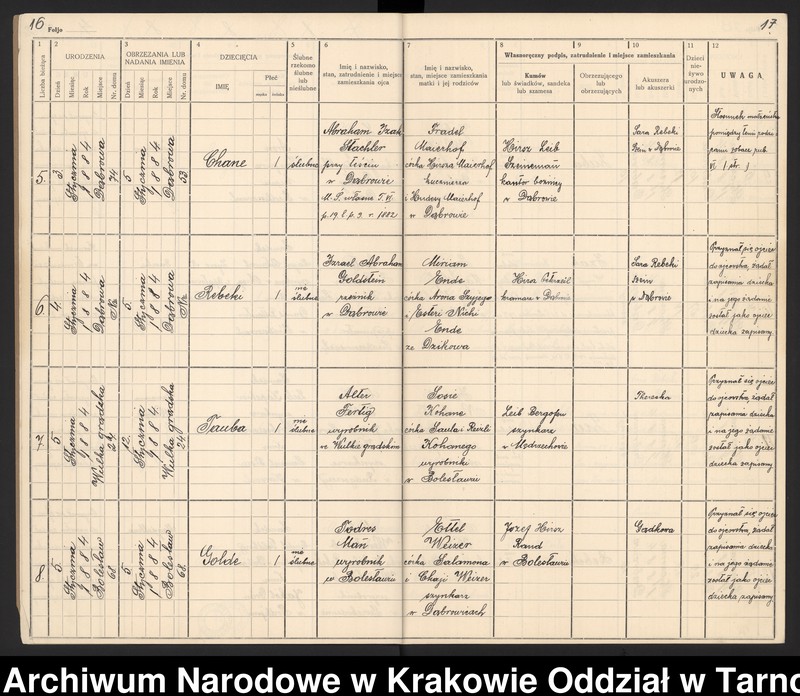 16 Foljo
17
1 2 3 4 5 6 7 8 9 10 11 12
Liczba bieżąca
URODZENIA
Dzień Miesiąc Rok Miejsce Nr. domu
OBRZEZANIA LUB
NADANIA IMIENIA
Dzień Miesiąc Rok Miejsce Nr. domu
DZIECIĘCIA
IMIĘ
Płeć
męska żeńska
Ślubne
rzekomo
ślubne
lub
nieślubne
Imię i nazwisko,
stan, zatrudnienie i miejsce
zamieszkania ojca
Imię i nazwisko,
stan, miejsce zamieszkania
matki i jej rodziców
Własnoręczny podpis, zatrudnienie i miejsce zamieszkania
Kumów
lub świadków, sandeka
lub szamesa
Obrzezującego
lub
obrzezujących
Akuszera
lub akuszerki
Dzieci
nie-
żywo
urodzo-
nych
UWAGA
5.
3
Stycznia
1884
Dąbrowa
74
5
Stycznia
1884
Dąbrowa
53
Chane
1
ślubne
Abraham Izak
Stachler
przy teściu
w Dąbrowie
p. 19 l. p. 3 r. 1882
Fradel
Maierhof
córka Hersza Maierhof
kuśnierza
i Hendesy Maierhof
w Dąbrowie
Hirsz Leib
kantor bożnicy
w Dąbrowie
Sara Rebeki
Bem w Dąbrowie
Stosunek małżeński
pomiędzy temi podan.
6.
4.
Stycznia
1884
Dąbrowa
5.
Stycznia
1884
Dąbrowa
Rebeki
1
nie
ślubne
Izrael Abraham
Goldstein
rzeźnik
w Dąbrowie
Miriam
Ende
córka Arona Szyjego
i Esteri Nichi
Ende
ze Dzikowa
Sara Rebeki
Bem
w Dąbrowie
Przyznał się ojciec
do ojcowstwa, żądał
zapisania dziecka
i na jego żądanie
został jako ojciec
dziecka zapisany.
7.
5
Stycznia
1884
Wulka grądska
24
12.
Stycznia
1884
Wulka grądska
24
Tauba
1
nie
ślubne
Alter
Fertig
wyrobnik
w Wulkie grądskiem
Sosie
Kohane
córka Saula i Reizli
Kohanego
wyrobniki
w Bolesławiu
szynkarz
w Mędrzechowie
Przyznał się ojciec
do ojcowstwa, żądał
zapisania dziecka
i na jego żądanie
został jako ojciec
dziecka zapisany.
8.
5
Stycznia
1884
Bolesław
68.
5
Stycznia
1884
Bolesław
68.
Golde
1
nie
ślubne
wyrobnik
w Bolesławiu
Ettel
Weizer
córka Salamona
i Chaji Weizer
szynkarz
w Dąbrowicach
Józef Hirsz
Rand
w Bolesławiu
Gadkowa
Przyznał się ojciec
do ojcowstwa, żądał
zapisania dziecka
i na jego żądanie
został jako ojciec
dziecka zapisany.
Archiwum Narodowe w Krakowie Oddział w Tarno